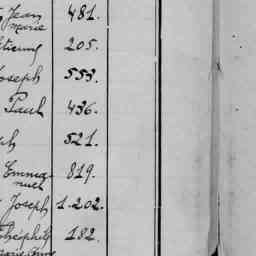 Jean 481.
marie
Etienne 205.
Joseph 553.
Paul 436.
ph 521.
Emma- 819.
nuel
Joseph 1.202.
Théophile 182.